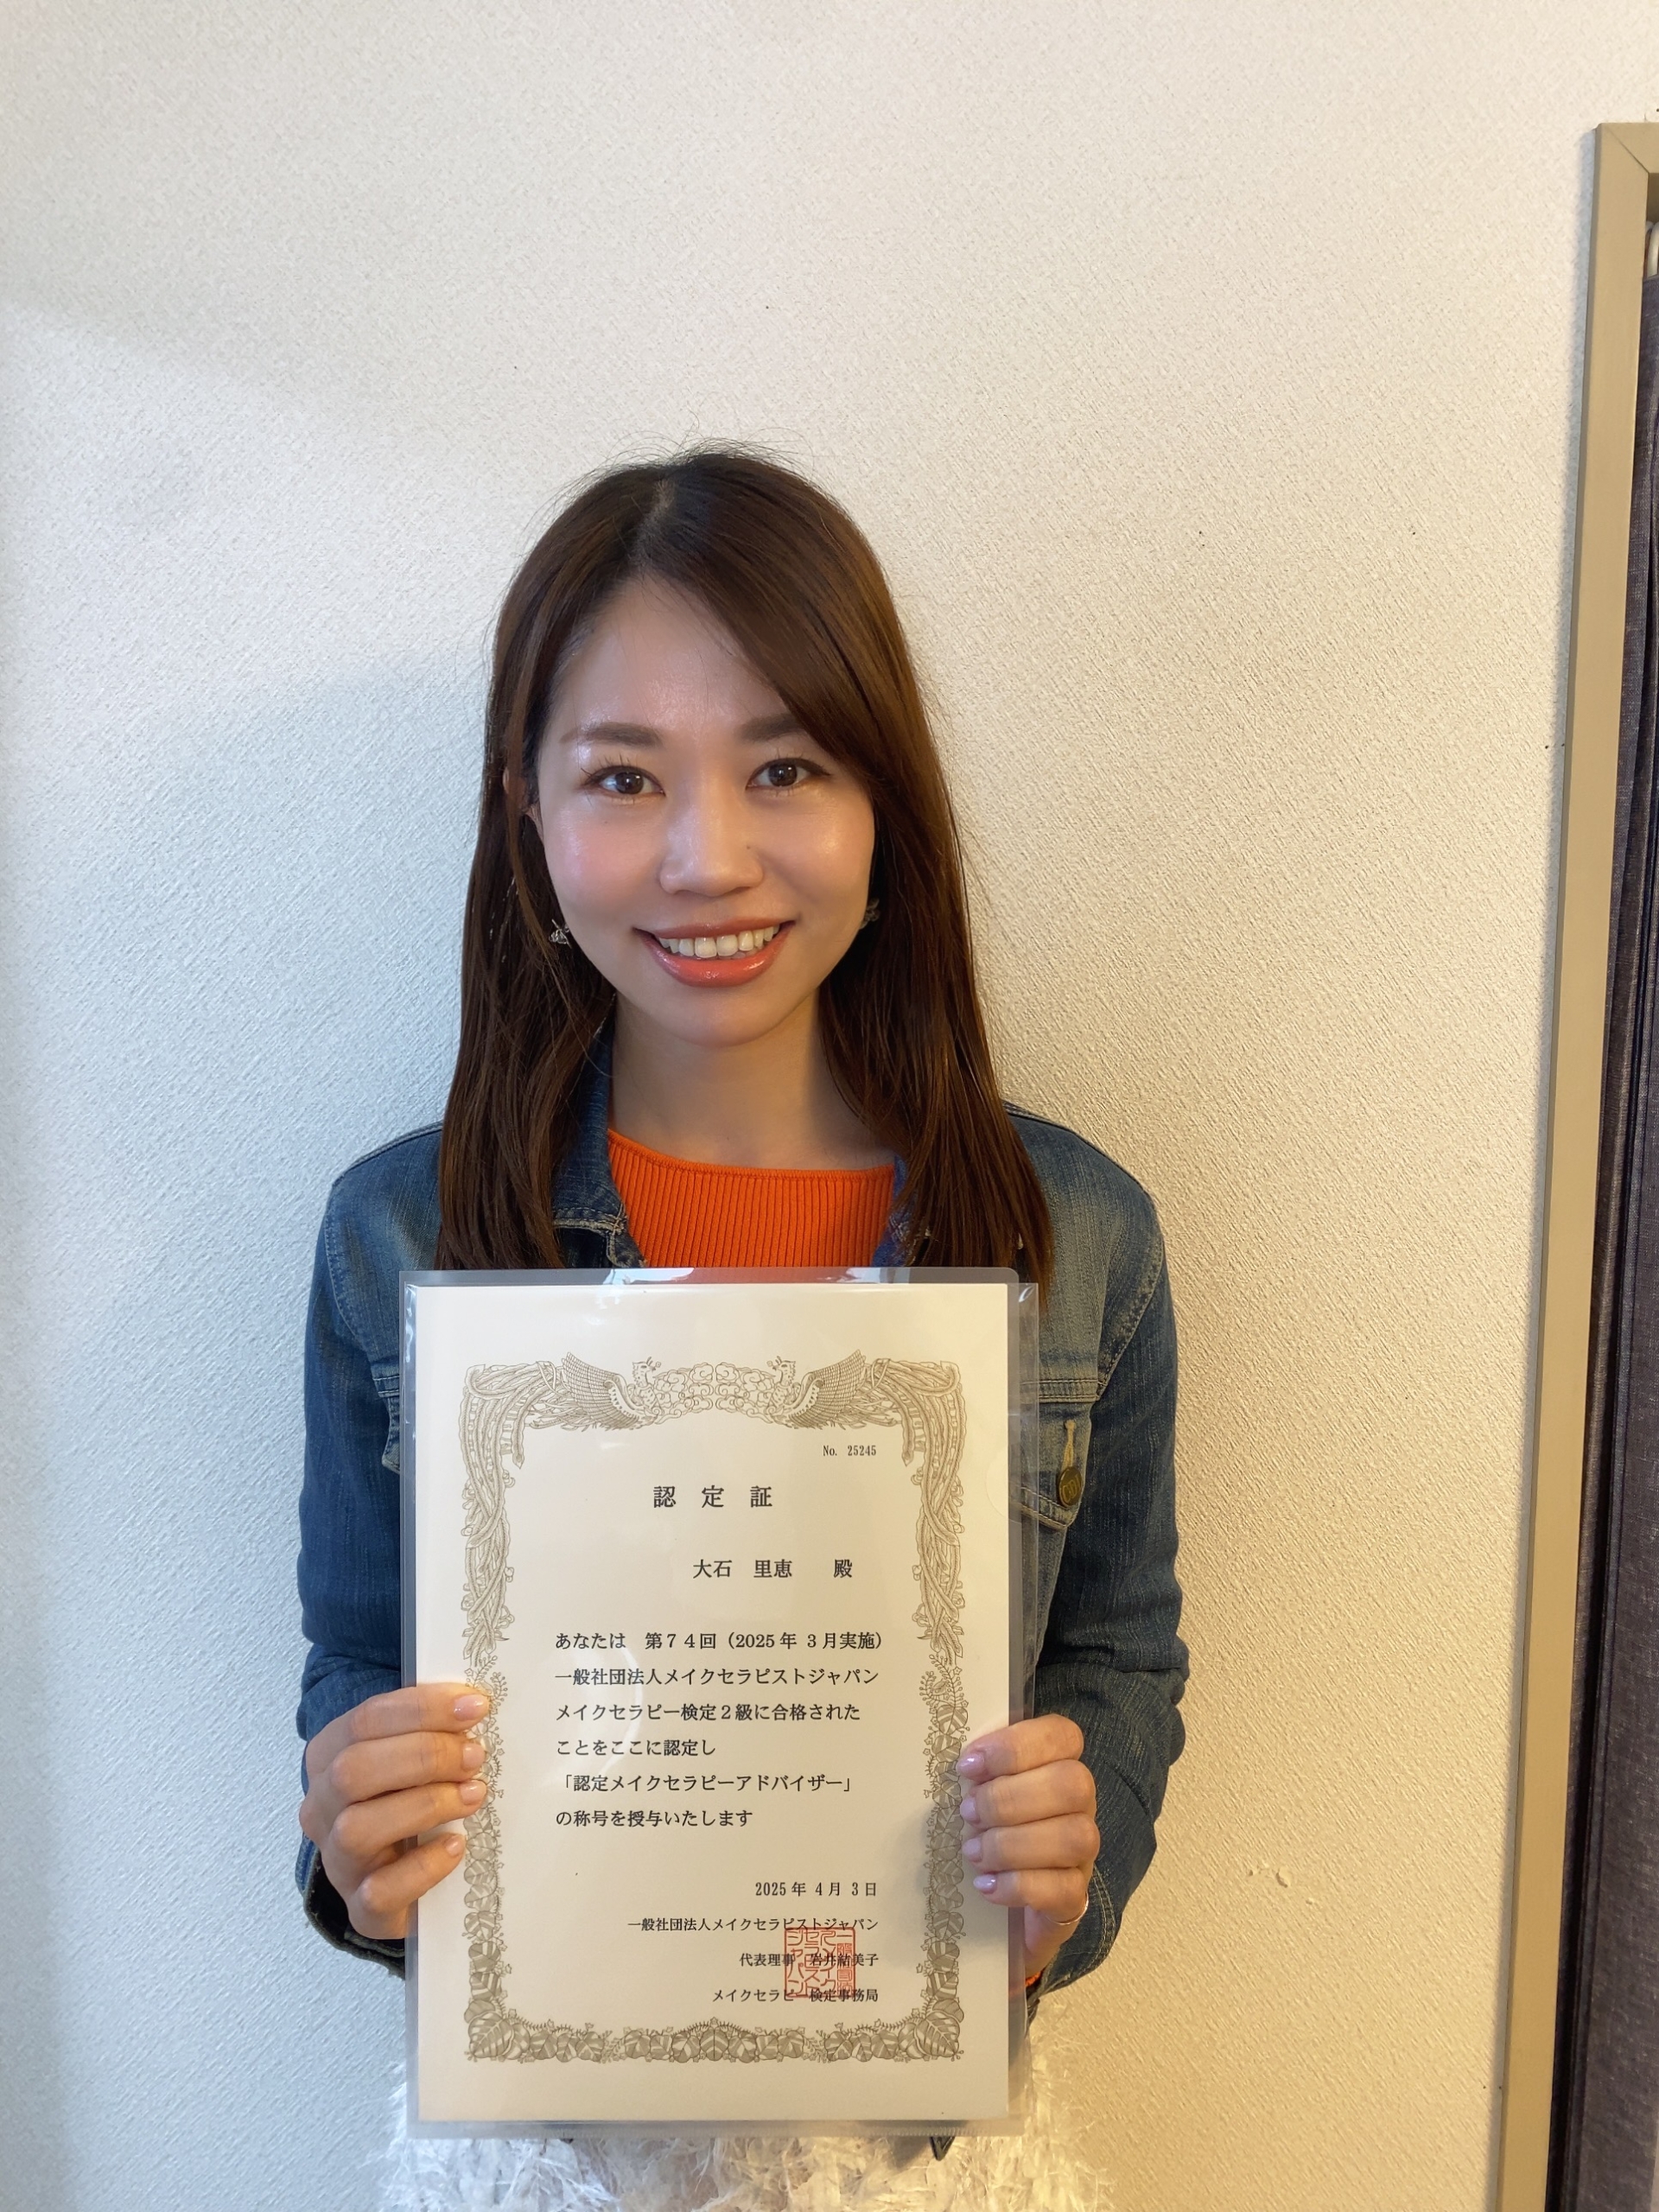 No. 25245
認 定 証
大石 里恵 殿
あなたは 第74回(2025年 3月実施)
一般社団法人メイクセラピストジャパン
メイクセラピー検定2級に合格された
ことをここに認定し
「認定メイクセラピーアドバイザー」
の称号を授与いたします
2025年 4月 3日
一般社団法人メイクセラピストジャパン
代表理事 岩井結美子
メイクセラピー検定事務局